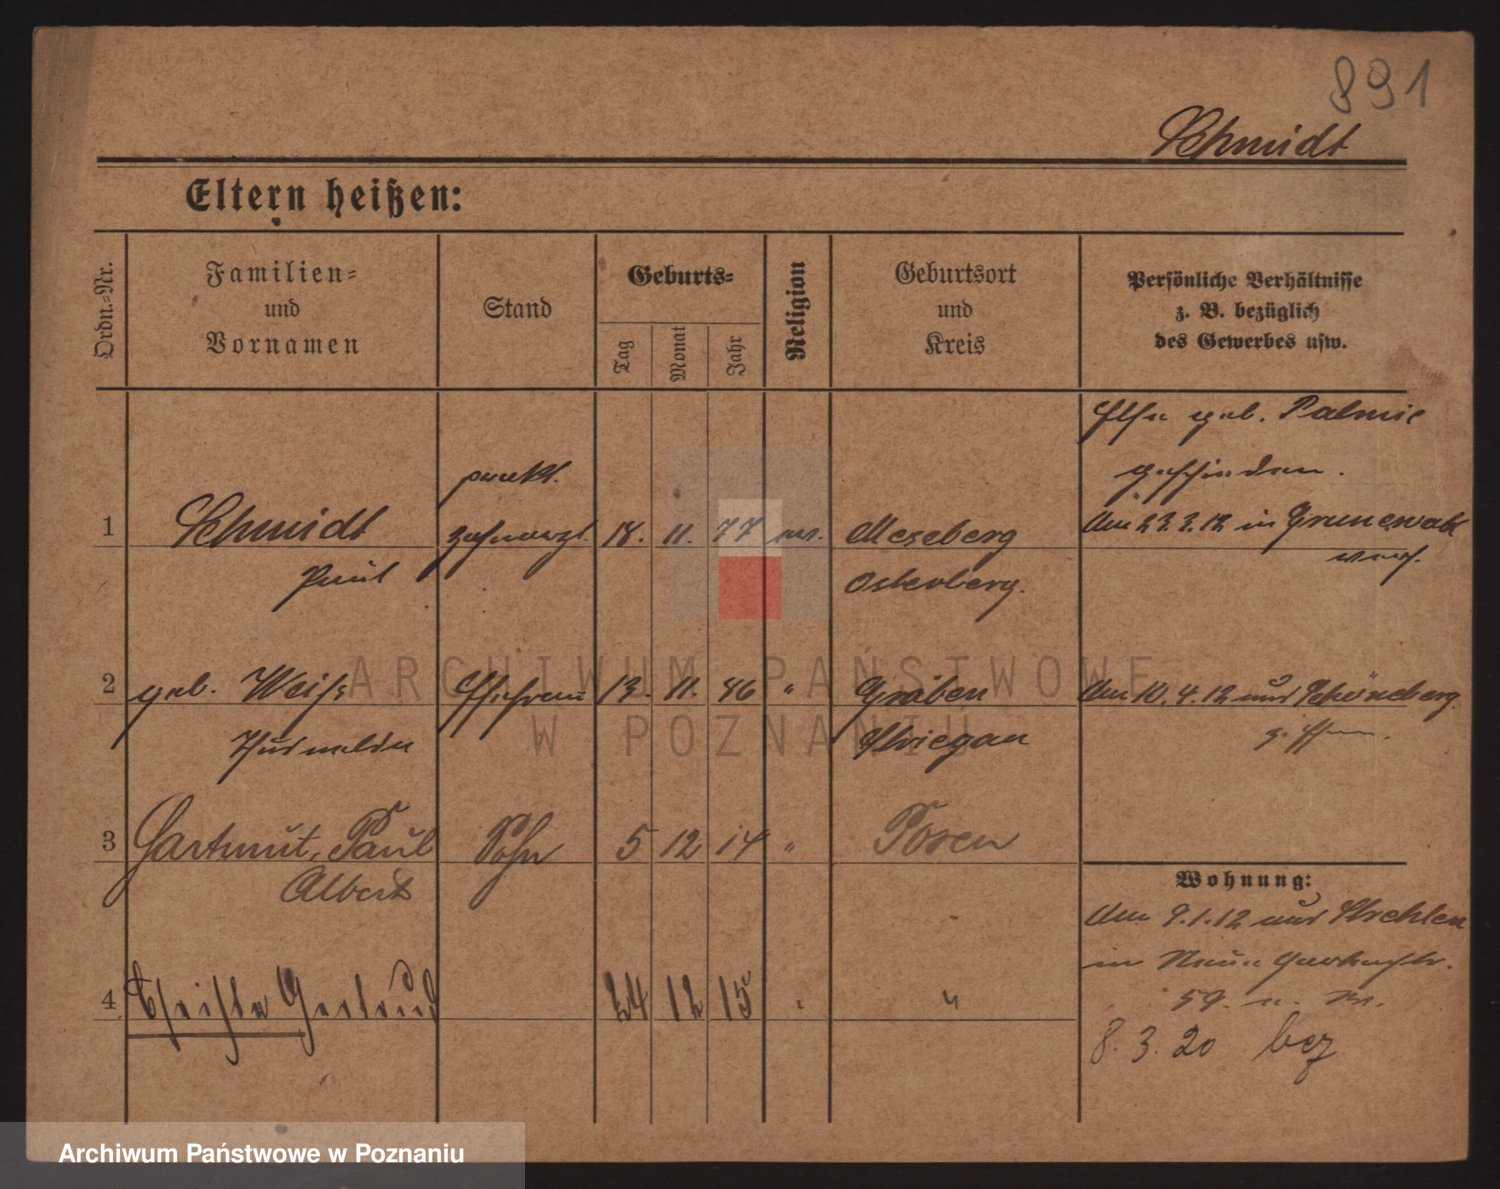 891
Schmidt
Eltern heißen:
Ordn.-Nr.
Familien-
und
Vornamen
Stand
Geburts-
Tag
Monat
Jahr
Religion
Geburtsort
und
Kreis
Persönliche Verhältnisse
z. B. bezüglich
des Gewerbes usw.
geb. Palmie
geschieden.
1
Schmidt
Paul
prakt.
Zahnarzt.
18. 11. 77
Meseberg
Osterberg.
Am 22.2.12 in Grunewald
verh.
2
geb. Weiß
Ehefrau
13. 11. 86 "
Gräben
Striegau
Am 10.4.12 aus Schöneberg
3
Hartmut, Paul
Albert
Sohn
5 12 14 "
Posen
4
Gertrud
24 12 15 "
"
Wohnung:
Am 9.1.12 aus Strehlen
in
59.
8.3.20 bez
ARCHIWUM PAŃSTWOWE
W POZNANIU
Archiwum Państwowe w Poznaniu